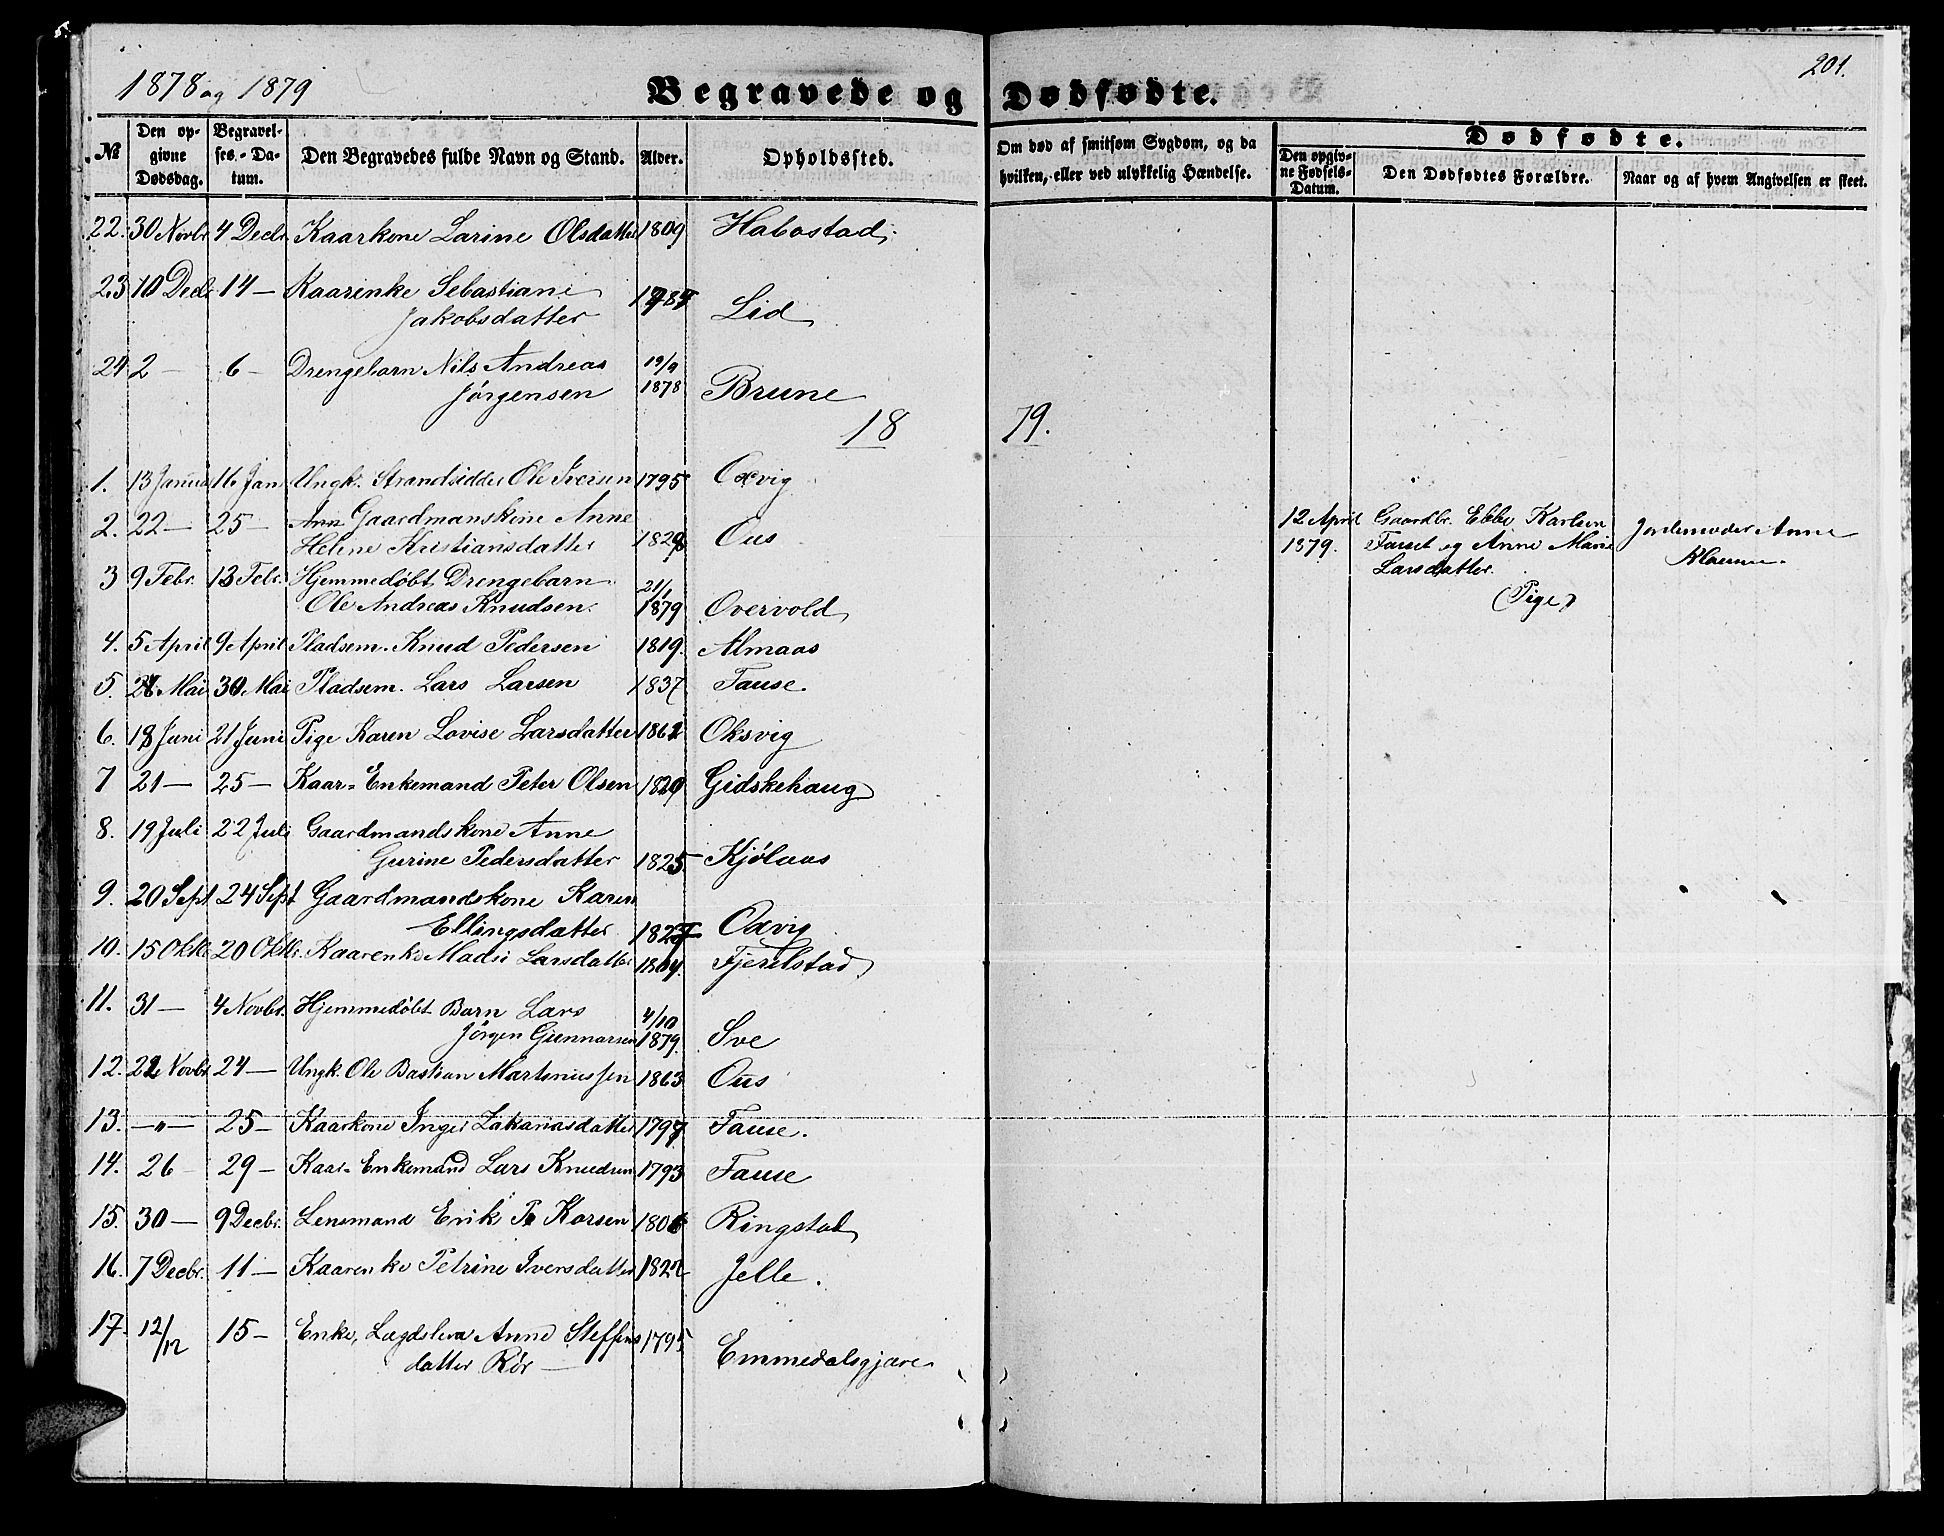 1878 og 1879
201.
Begravede og Dødfødte.
№
Den opgivne Dødsdag.
Begravelses-Datum.
Den Begravedes fulde Navn og Stand.
Alder.
Opholdssted.
Om død af smitsom Sygdom, og da hvilken, eller ved ulykkelig Hændelse.
Dødfødte.
Den opgivne Fødsels-Datum.
Den Dødfødtes Forældre.
Naar og af hvem Angivelsen er skeet.
22. 30 Novbr 4 Decbr. Kaarkone Larine Olsdatter 1809 Habostad
23 10 Decbr 14 — Kaarenke Sebastiane
Jakobsdatter Lid
24 2 — 6 — Drengebarn Nils Andreas 19/9
Jørgensen 1878 Brune
1879.
1. 13 Januar 16 Jan Ungk. Strandsidder Ole Iversen 1795 Oxvig
2. 22 — 25 — Gaardmanskone Anne
Helene Kristiansdatter Ous
3 9 Febr. 13 Febr. Hjemmedøbt Drengebarn 21/1
Ole Andreas Knudsen. 1879 Overvold
4. 5 April 9 April Pladsem. Knud Pedersen 1819. Almaas
5. Mai 30 Mai Pladsem. Lars Larsen 1837 Fause.
6. 18 Juni 21 Juni Pige Karen Lovise Larsdatter Oksvig
7 21 — 25 — Kaar-Enkemand Peter Olsen Gidskehaug
8. 19 Juli 22 Juli Gaardmandskone Anne
Gurine Pedersdatter 1825 Kjølaas
9. 20 Sept. 24 Sept Gaardmandskone Karen
Ellingsdatter Oxvig
10. 15 Oktbr 20 Oktbr. Kaarenke Madsi Larsdatter 1804. Fjerelstad
11. 31 — 4 Novbr. Hjemmedøbt Barn Lars 4/10
Jørgen Gunnarsen 1879. Sve
12. Novbr 24 — Ungk. Ole Bastian Martinussen 1863 Ous
13. — " — 25 — Kaarkone Inger Zakariasdatter 1797 Fause.
14. 26 29 — Kaar-Enkemand Lars Knudsen 1793 Fause
15. 30 — 9 Decbr. Lensmand Erik P. Korsen Ringstad
16. 7 Decbr. 11 — Kaarenke Petrine Iversdatter Jelle.
17. 12/12 15 — Enke, Lægdslem Anne Steffens 1795
datter Rór — Emmedalsgjære
12 April Gaardbr. Ebbe Karlsen Jordemoder Anne
1879. Fauset og Anne Marie
Larsdatter.
(Pige)